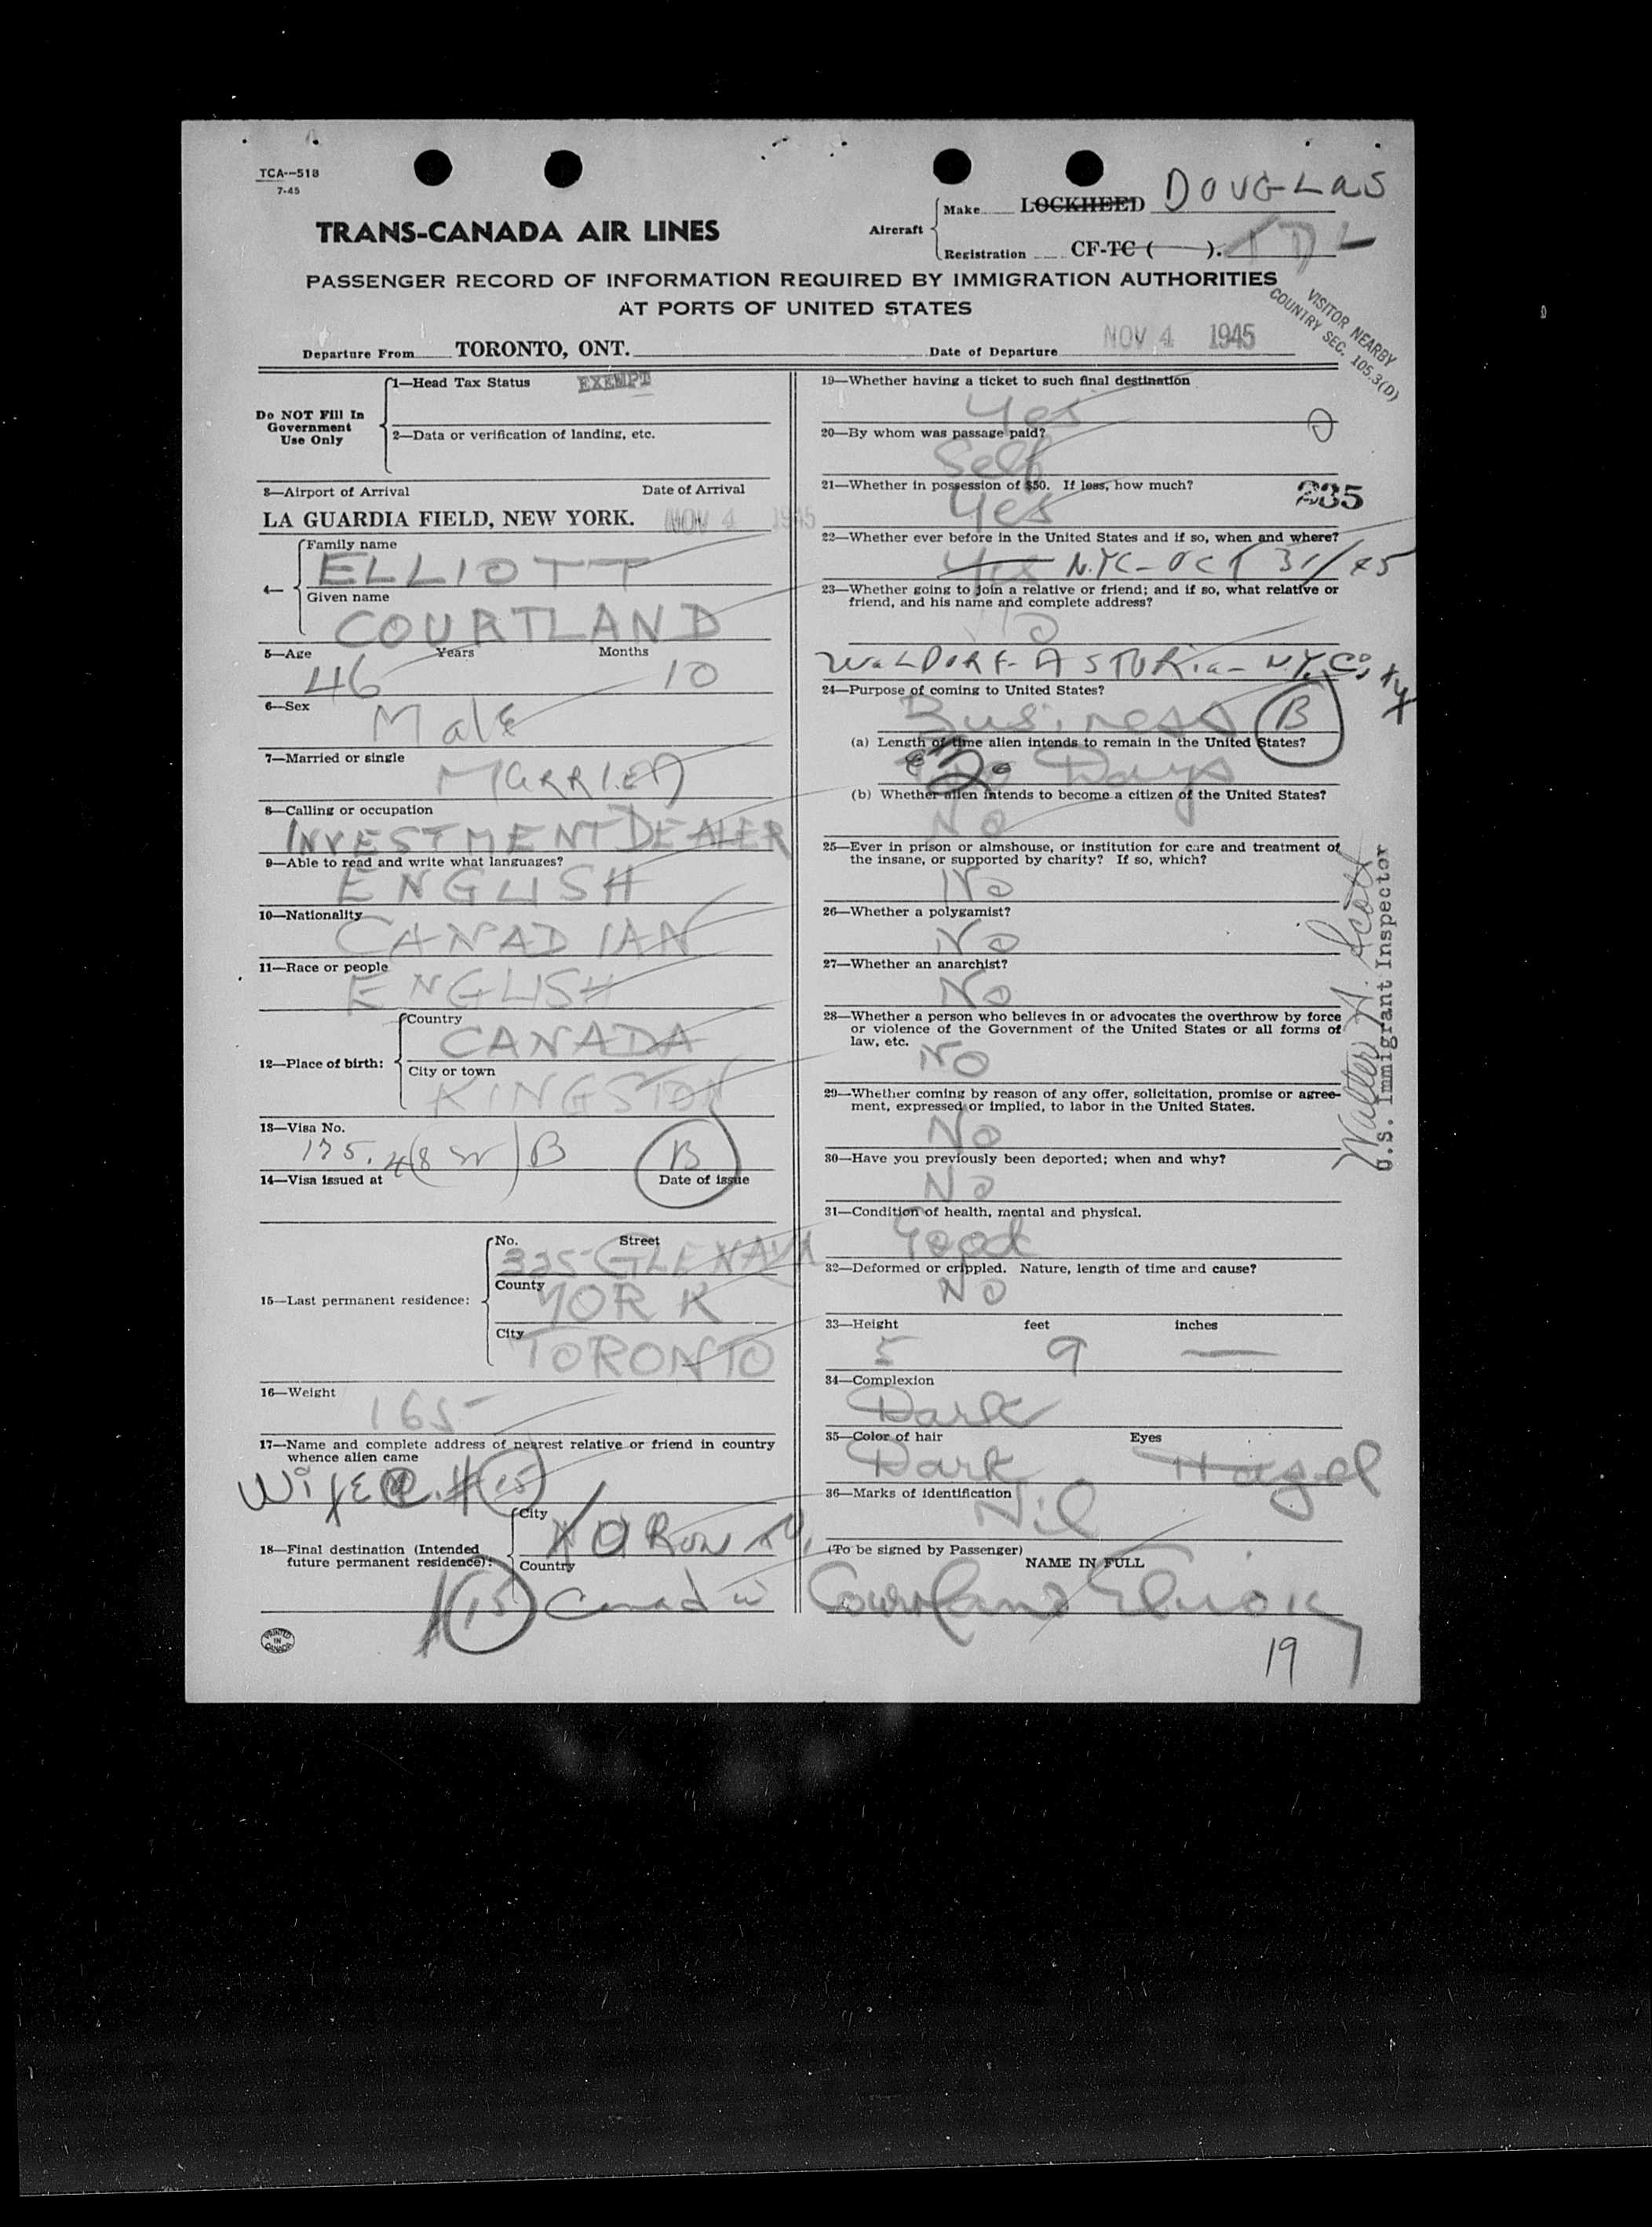 TCA--518
7-45
TRANS-CANADA AIR LINES
Aircraft
Make LOCKHEED DOUGLAS
Registration CF-TC ( ). TDL
PASSENGER RECORD OF INFORMATION REQUIRED BY IMMIGRATION AUTHORITIES
AT PORTS OF UNITED STATES
VISITOR NEARBY
COUNTRY SEC. 105.3(D)
Departure From TORONTO, ONT.
Date of Departure NOV 4 1945
Do NOT Fill In
Government
Use Only
1—Head Tax Status EXEMPT
2—Data or verification of landing, etc.
3—Airport of Arrival Date of Arrival
LA GUARDIA FIELD, NEW YORK. NOV 4 1945
4—
Family name
ELLIOTT
Given name
COURTLAND
5—Age Years Months
46 10
6—Sex
Male
7—Married or single
MARRIED
8—Calling or occupation
INVESTMENT DEALER
9—Able to read and write what languages?
ENGLISH
10—Nationality
CANADIAN
11—Race or people
ENGLISH
12—Place of birth:
Country
CANADA
City or town
KINGSTON
13—Visa No.
175. B
B
14—Visa issued at Date of issue
15—Last permanent residence:
No. Street
325 GLENAYR
County
YORK
City
TORONTO
16—Weight
165
17—Name and complete address of nearest relative or friend in country
whence alien came
Wife @ # 15
18—Final destination (Intended
future permanent residence):
City
TORONTO
Country
#15 Canada
PRINTED
IN
CANADA
19—Whether having a ticket to such final destination
Yes
20—By whom was passage paid?
Self
21—Whether in possession of $50. If less, how much?
Yes
235
22—Whether ever before in the United States and if so, when and where?
Yes N.Y.C - OCT 31/45
23—Whether going to join a relative or friend; and if so, what relative or
friend, and his name and complete address?
No
WALDORF-ASTORIA - N.Y. City
24—Purpose of coming to United States?
Business B
(a) Length of time alien intends to remain in the United States?
Days
(b) Whether alien intends to become a citizen of the United States?
No
25—Ever in prison or almshouse, or institution for care and treatment of
the insane, or supported by charity? If so, which?
No
26—Whether a polygamist?
No
27—Whether an anarchist?
No
28—Whether a person who believes in or advocates the overthrow by force
or violence of the Government of the United States or all forms of
law, etc.
No
29—Whether coming by reason of any offer, solicitation, promise or agree-
ment, expressed or implied, to labor in the United States.
No
30—Have you previously been deported; when and why?
No
31—Condition of health, mental and physical.
Good
32—Deformed or crippled. Nature, length of time and cause?
No
33—Height feet inches
5 9 —
34—Complexion
Dark
35—Color of hair Eyes
Dark Hazel
36—Marks of identification
Nil
(To be signed by Passenger)
NAME IN FULL
Courtland Elliott
19
Walter A. Scott
U.S. Immigrant Inspector